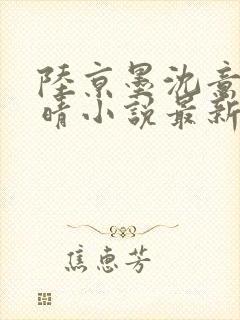 陸京墨沈意
晴小說最新
焦惠芳